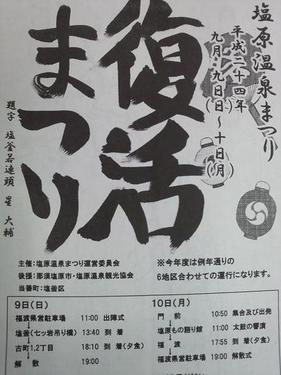 塩原温泉まつり
平成二十四年
九月・九日(日)~十日(月)
復活
まつり
題字 塩釜若連頭 星 大輔
主催:塩原温泉まつり運営委員会
後援:那須塩原市・塩原温泉観光協会
当番町:塩釜区
※今年度は例年通りの
6地区合わせての運行になります。
9日(日)
福渡県営駐車場 11:00 出陣式
塩釜(七ッ岩吊り橋) 13:40 到 着
古町1,2丁目 18:10 到着(夕食)
解散 19:00
10日(月)
門 前 10:50 集合及び出発
塩原もの語り館 11:00 太鼓の響演
福 渡 17:55 到着(夕食)
福渡県営駐車場 19:00 解散式